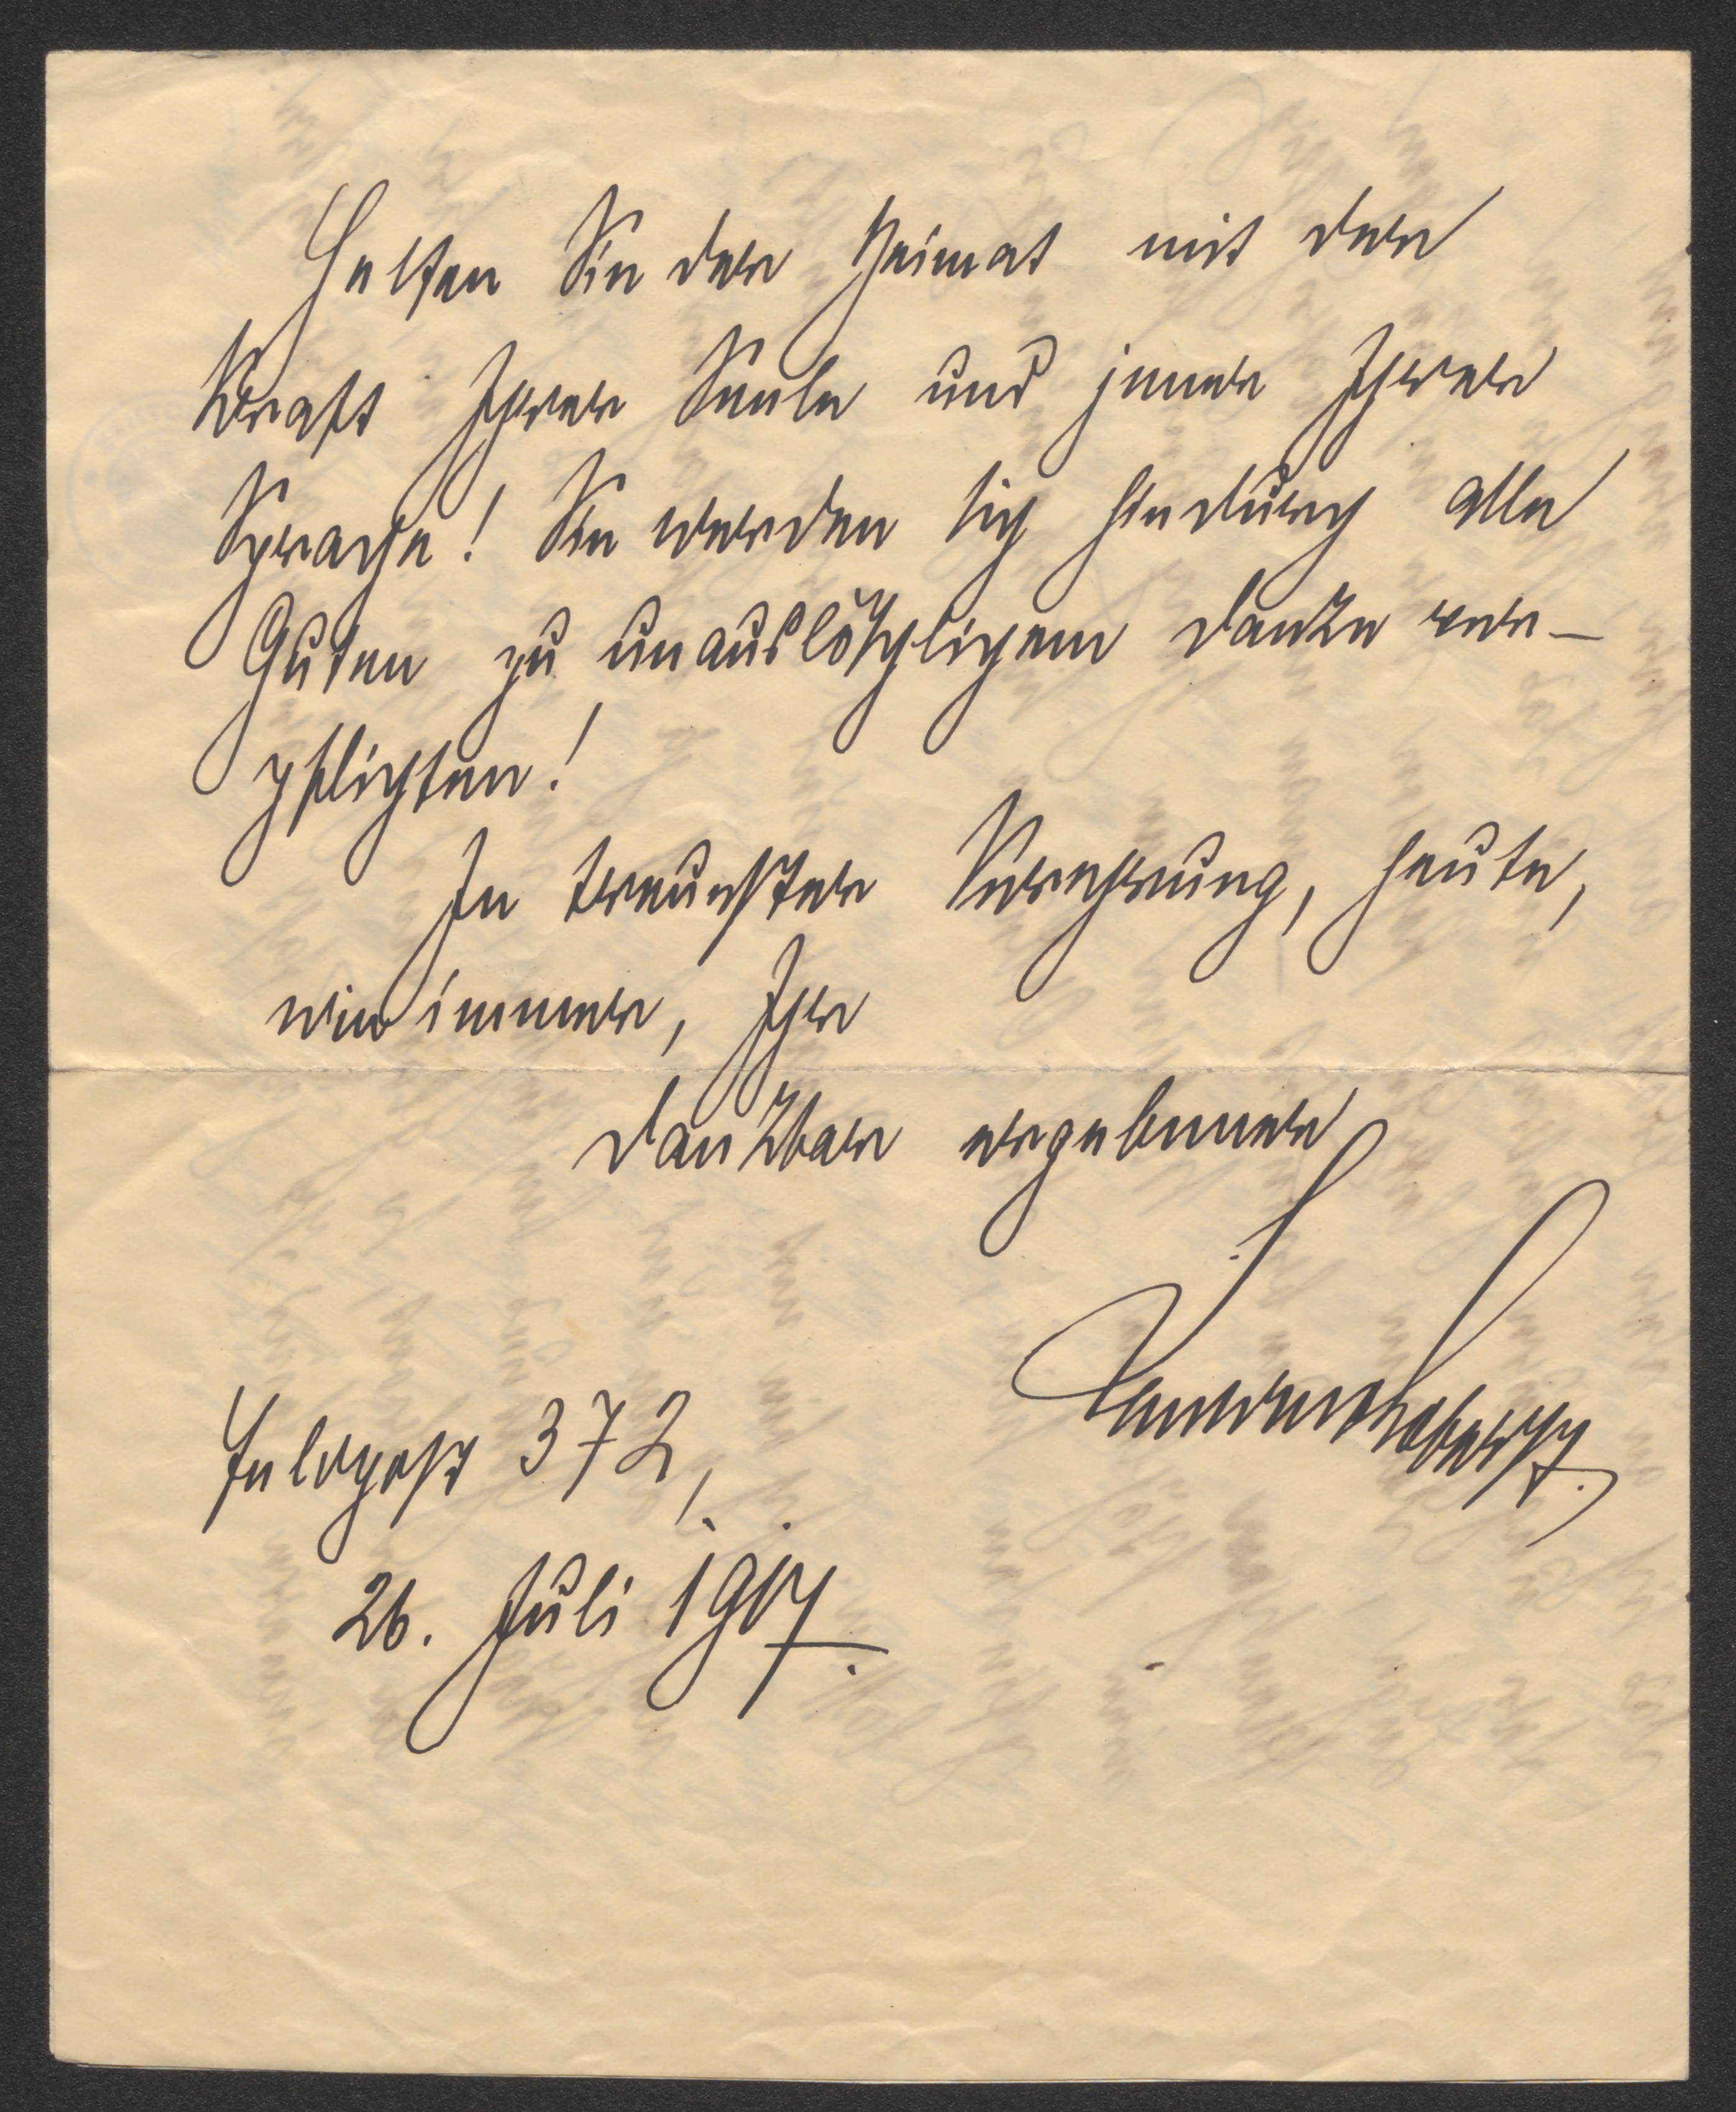 Helfen Sie der Heimat mit der
Kraft Ihrer Seele und jener Ihrer
Sprache! Sie werden sich hiedurch alle
Guten zu unauslöschlichem Danke ver-
pflichten!
In treuester Verehrung, heute,
wie immer, Ihr
dankbar ergebener
Feldpost 372,
26. Juli 1917.